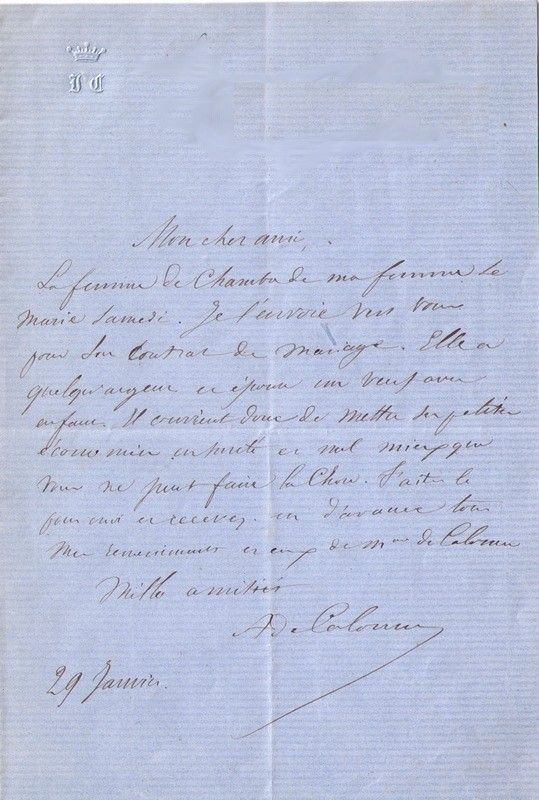 J C
Mon cher ami,
La femme de Chambre de ma femme se
marie Samedi. Je l'envoie vers vous
pour son Contrat de mariage. Elle a
quelqu'argent et épouse un veuf avec
enfans. Il convient donc de mettre ses petites
économies en sureté et nul mieux que
vous ne peut faire la Chose. Faites le
pour moi et recevez en d'avance tous
mes remerciments et ceux de Mme de Calonne
Mille amitiés
A de Calonne
29 Janvier.